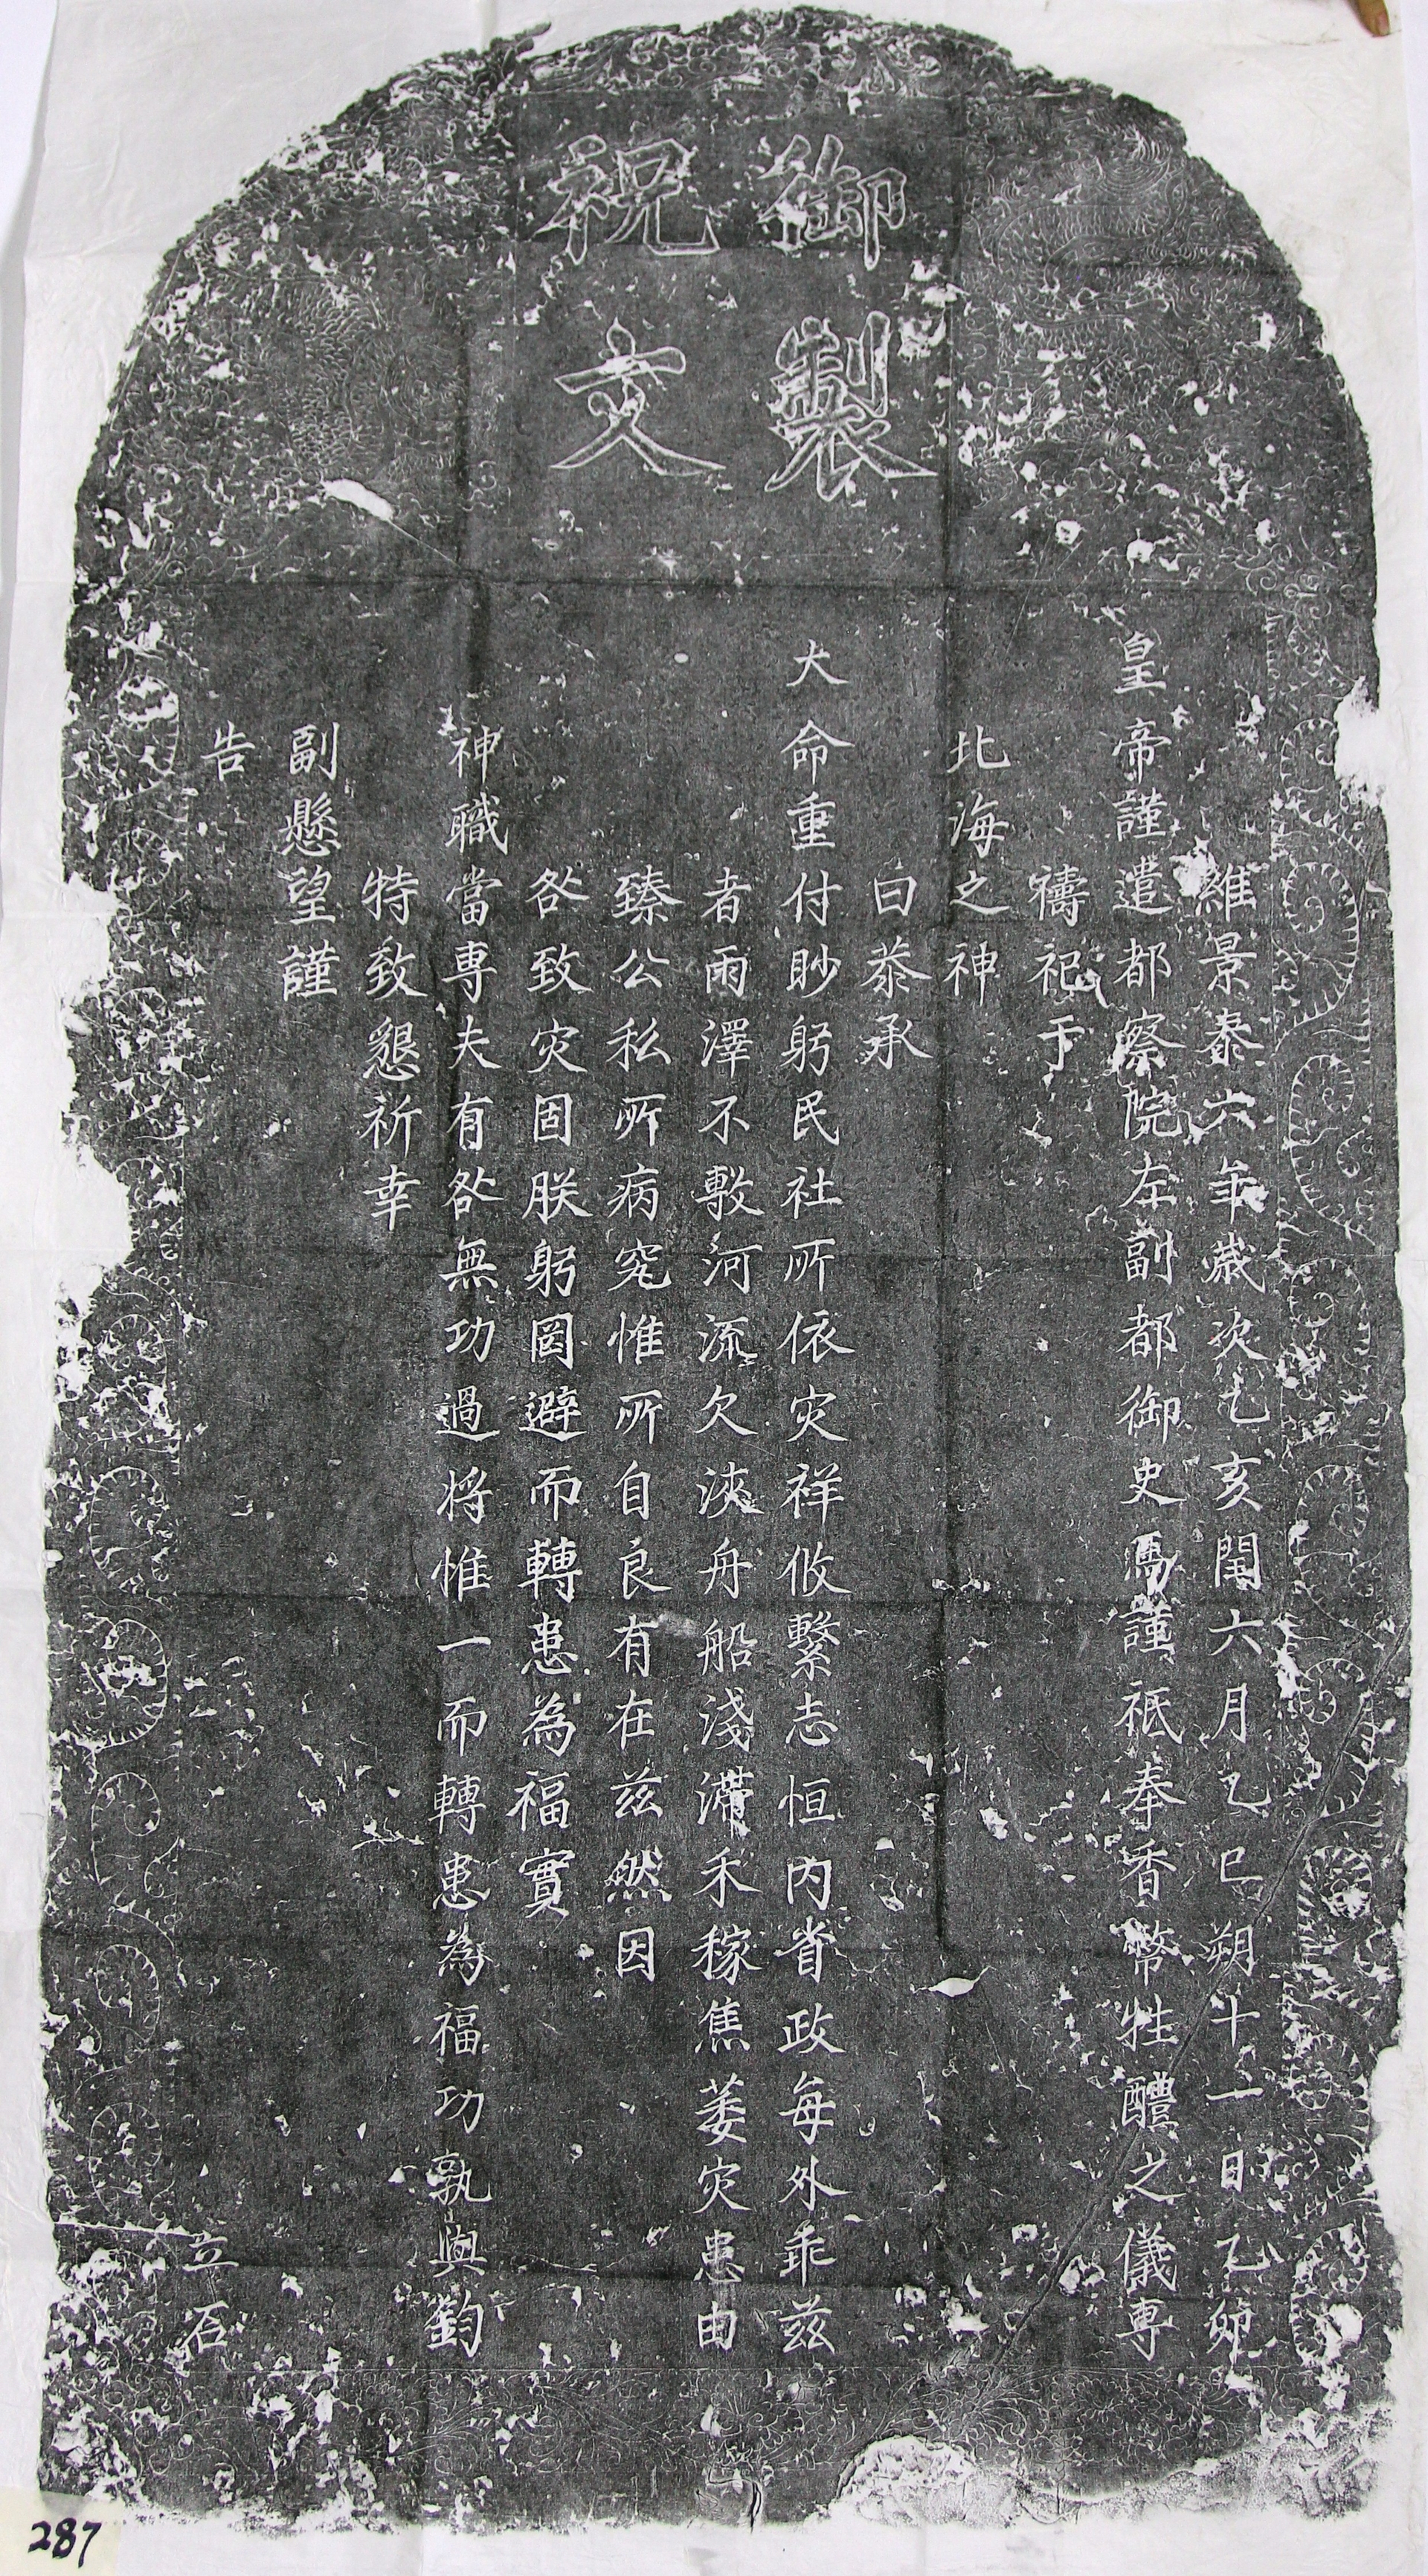 御製
祝文
維景泰六年歲次乙亥閏六月乙巳朔十一日乙卯
皇帝謹遣都察院左副都御史馬謹祗奉香幣牲醴之儀專
禱祀于
北海之神
曰忝承
大命重付眇躬民社所依灾祥攸繫志恒內省政每外乖茲
者雨澤不敷河流欠浹舟船淺滯禾稼焦萎灾患由
臻公私所病究惟所自良有在茲然因
咎致灾固朕躬罔避而轉患為福實
神職當專夫有咎無功過將惟一而轉患為福功孰與鈞
特致懇祈幸
副懸望謹
告
立石
287